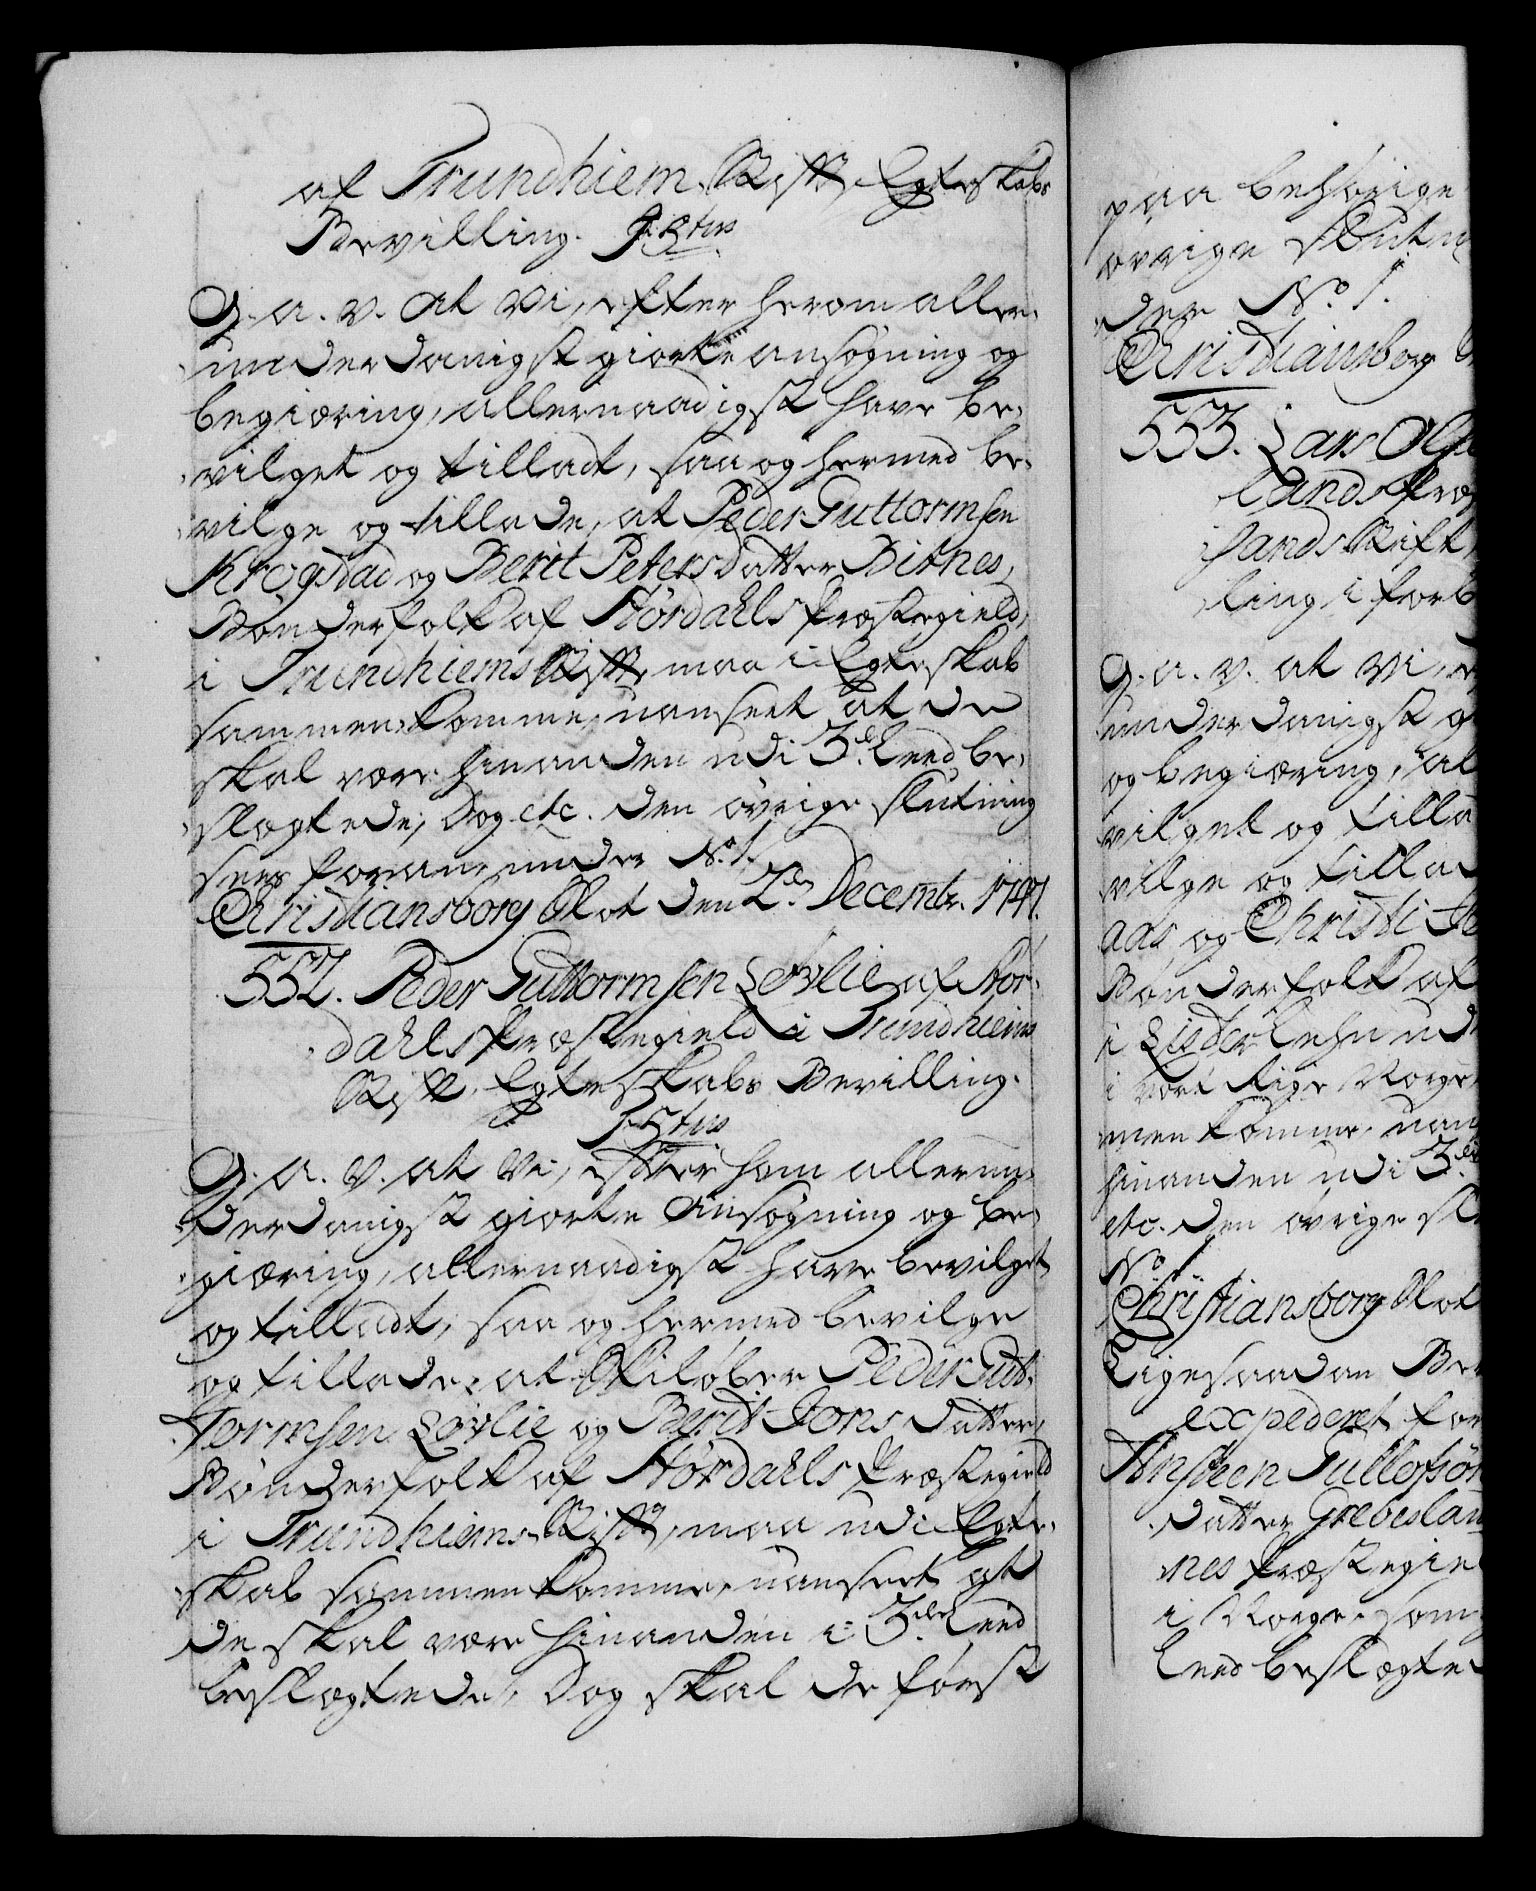 af Trundhiem Stift, Egteskabs
Bevilling.
G. a. v. at Vi, efter herom aller-
underdanigst giorte ansøgning og
begiæring, allernaadigst have be-
vilget og tilladt, saa og hermed be-
vilge og tillade, at Peder Guttormsen
Krogstad og Berit Peters datter Bitnes,
Bønderfolk af Størdahls Præstegield,
i Trundhiems Stift, maa i Egteskab
sammenkomme, uanseet at de
skal være hinanden udi 3de Leed be-
slægtede; Dog etc. den øvrige slutning
sees foran under No. 1.
Christiansborg Slot den 2den Decembr. 1747.
552. Peder Guttormsen Løvlie af Stør-
dahls Præstegield i Trundhiems
Stift, Egteskabs Bevilling.
G. a. v. at Vi, efter hom allerun-
derdanigst giorte Ansøgning og be-
giæring, allernaadigst have bevilget
og tilladt, saa og hermed bevilge
og tillade, at Skiløber Peder Gut-
tormsen Løvlie og Berit Jons datter,
Bønderfolk af Størdahls Præstegield
i Trundhiems Stift, maa udi Egte-
skab sammenkomme, uanseet at
de skal være hinanden i 3de Leed
beslægtede, Dog skal de først
paa behørige
øvrige Slutn
der No. 1.
Christiansborg
553. Lars
lands Præs
sands Stift,
ling i forb
G. a. v. at Vi, e
underdanigst g
og begiæring, al
vilget og tilla
vilge og tillad
aas og Christi
Bønderfolk af
i Lister Lehn ud
i vort Rige Norge
men komme, uan
hinanden udi 3de
etc. den øvrige sl
No. 1.
Christiansborg Slot
Ligesaadan Be
expederet for
Ansteen Gullofsøn
datter Grebeslan
nes Præstegie
i Norge, som
Leed beslægted